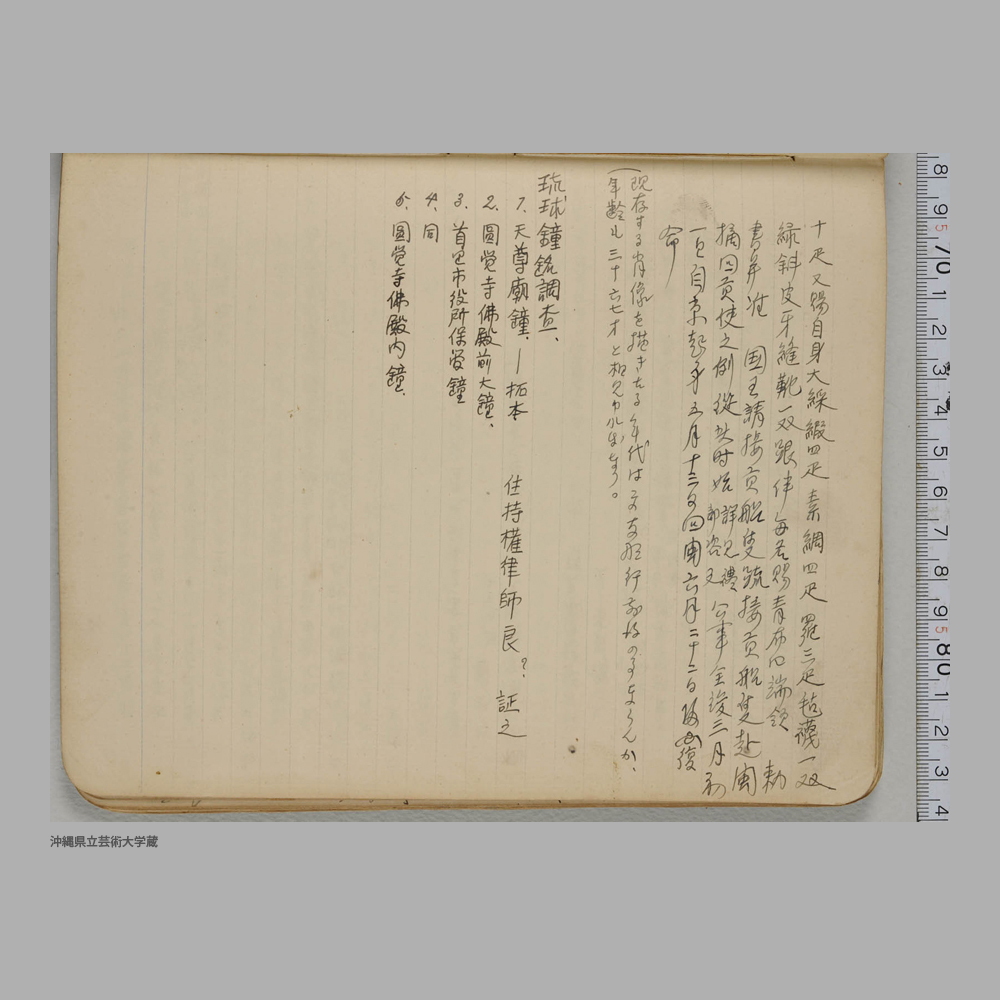 十疋又賜自身大綵緞四疋素綢四疋羅三疋毡襪一双
緑斜皮牙縫靴一双跟伴毎名賜青布四端領 勅
書并准 国王請接貢船隻疏接貢船隻赴閩
摘回貢使之例従此時始詳見禮部咨文公事全竣三月初
一日自京起身五月十三日回閩六月二十二日歸国復
命
現存する肖像を描きたる年代は
(年齢ハ三十六七才と相見ゆ
琉球鐘銘調査、
1. 天尊廟鐘、—拓本 住持權律師良? 証之
2. 圓覚寺佛殿前大鐘、
3. 首里市役所保管鐘
4. 同
5. 圓覚寺佛殿内鐘、
8 9 70 1 2 3 4 5 6 7 8 9 80 1 2 3 4
沖縄県立芸術大学蔵